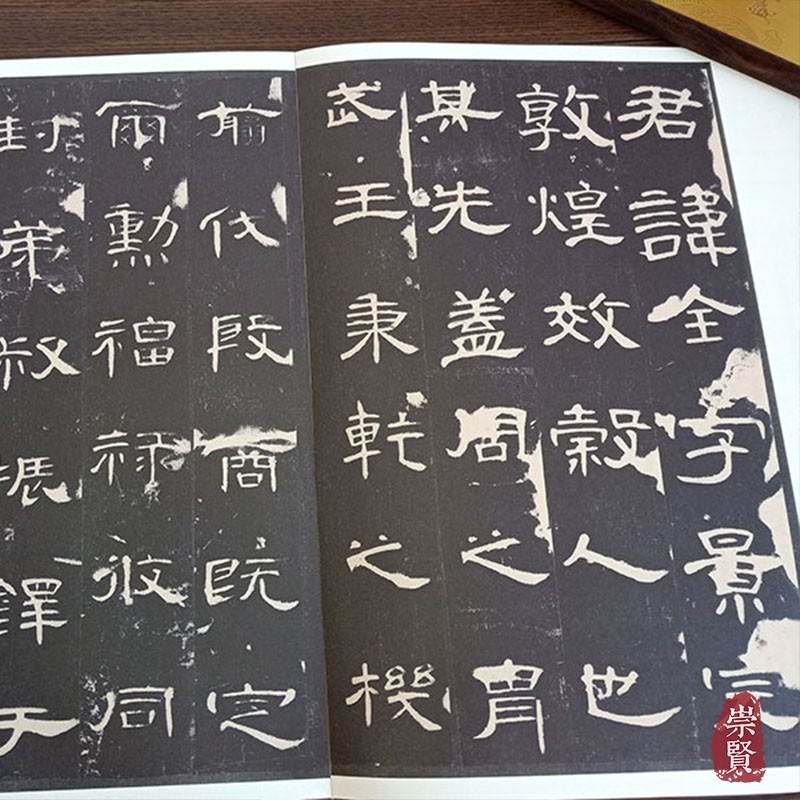 君諱全字景完
敦煌效穀人也
其先蓋周之胄
武王秉乾之機
翦伐殷商既定
爾勳福祿攸同
封弟叔振鐸于
崇賢